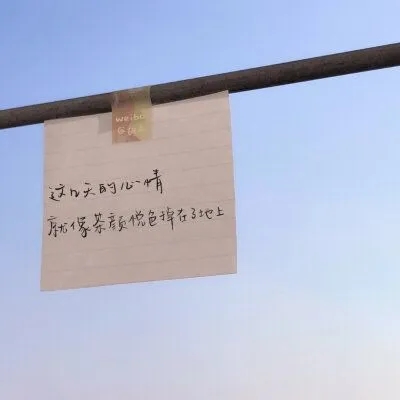 weibo
这几天的心情
就像茶颜悦色掉在了地上